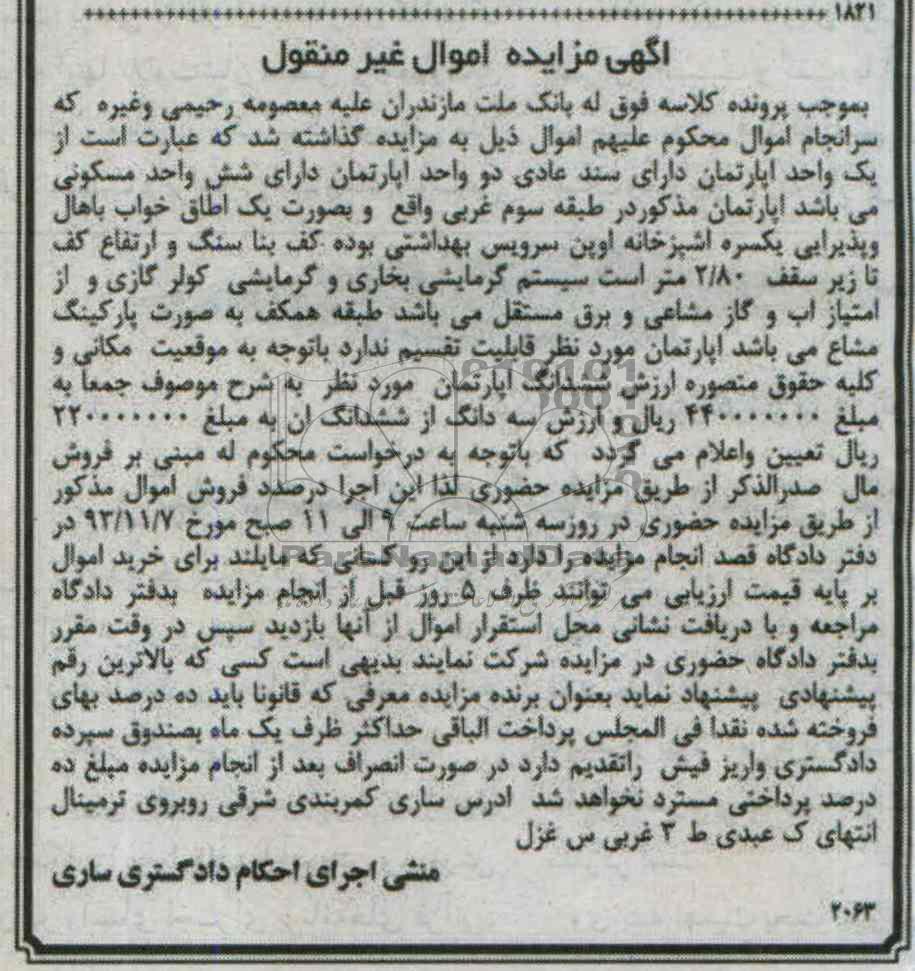 ۱۸۲۱
اگهی مزایده اموال غیر منقول
بموجب پرونده کلاسه فوق له بانک ملت مازندران علیه معصومه رحیمی وغیره که
سرانجام اموال محکوم علیهم اموال ذیل به مزایده گذاشته شد که عبارت است از
یک واحد اپارتمان دارای سند عادی دو واحد اپارتمان دارای شش واحد مسکونی
می باشد اپارتمان مذکوردر طبقه سوم غربی واقع و بصورت یک اطاق خواب باهال
وپذیرایی یکسره اشپزخانه اوپن سرویس بهداشتی بوده کف بنا سنگ و ارتفاع کف
تا زیر سقف ۲/۸۰ متر است سیستم گرمایشی بخاری و گرمایشی کولر گازی و از
امتیاز اب و گاز مشاعی و برق مستقل می باشد طبقه همکف به صورت پارکینگ
مشاع می باشد اپارتمان مورد نظر قابلیت تقسیم ندارد باتوجه به موقعیت مکانی و
کلیه حقوق متصوره ارزش ششدانگ اپارتمان مورد نظر به شرح موصوف جمعا به
مبلغ ۴۴۰۰۰۰۰۰۰ ریال و ارزش سه دانگ از ششدانگ ان به مبلغ ۲۲۰۰۰۰۰۰۰
ریال تعیین واعلام می گردد که باتوجه به درخواست محکوم له مبنی بر فروش
مال صدرالذکر از طریق مزایده حضوری لذا این اجرا درصدد فروش اموال مذکور
از طریق مزایده حضوری در روزسه شنبه ساعت ۹ الی ۱۱ صبح مورخ ۹۳/۱۱/۷ در
دفتر دادگاه قصد انجام مزایده را دارد از این رو کسانی که مایلند برای خرید اموال
بر پایه قیمت ارزیابی می توانند ظرف ۵ روز قبل از انجام مزایده بدفتر دادگاه
مراجعه و با دریافت نشانی محل استقرار اموال از آنها بازدید سپس در وقت مقرر
بدفتر دادگاه حضوری در مزایده شرکت نمایند بدیهی است کسی که بالاترین رقم
پیشنهادی پیشنهاد نماید بعنوان برنده مزایده معرفی که قانونا باید ده درصد بهای
فروخته شده نقدا فی المجلس پرداخت الباقی حداکثر ظرف یک ماه بصندوق سپرده
دادگستری واریز فیش راتقدیم دارد در صورت انصراف بعد از انجام مزایده مبلغ ده
درصد پرداختی مسترد نخواهد شد ادرس ساری کمربندی شرقی روبروی ترمینال
انتهای ک عبدی ط ۳ غربی س غزل
منشی اجرای احکام دادگستری ساری
۲۰۶۳
ParsNamadData